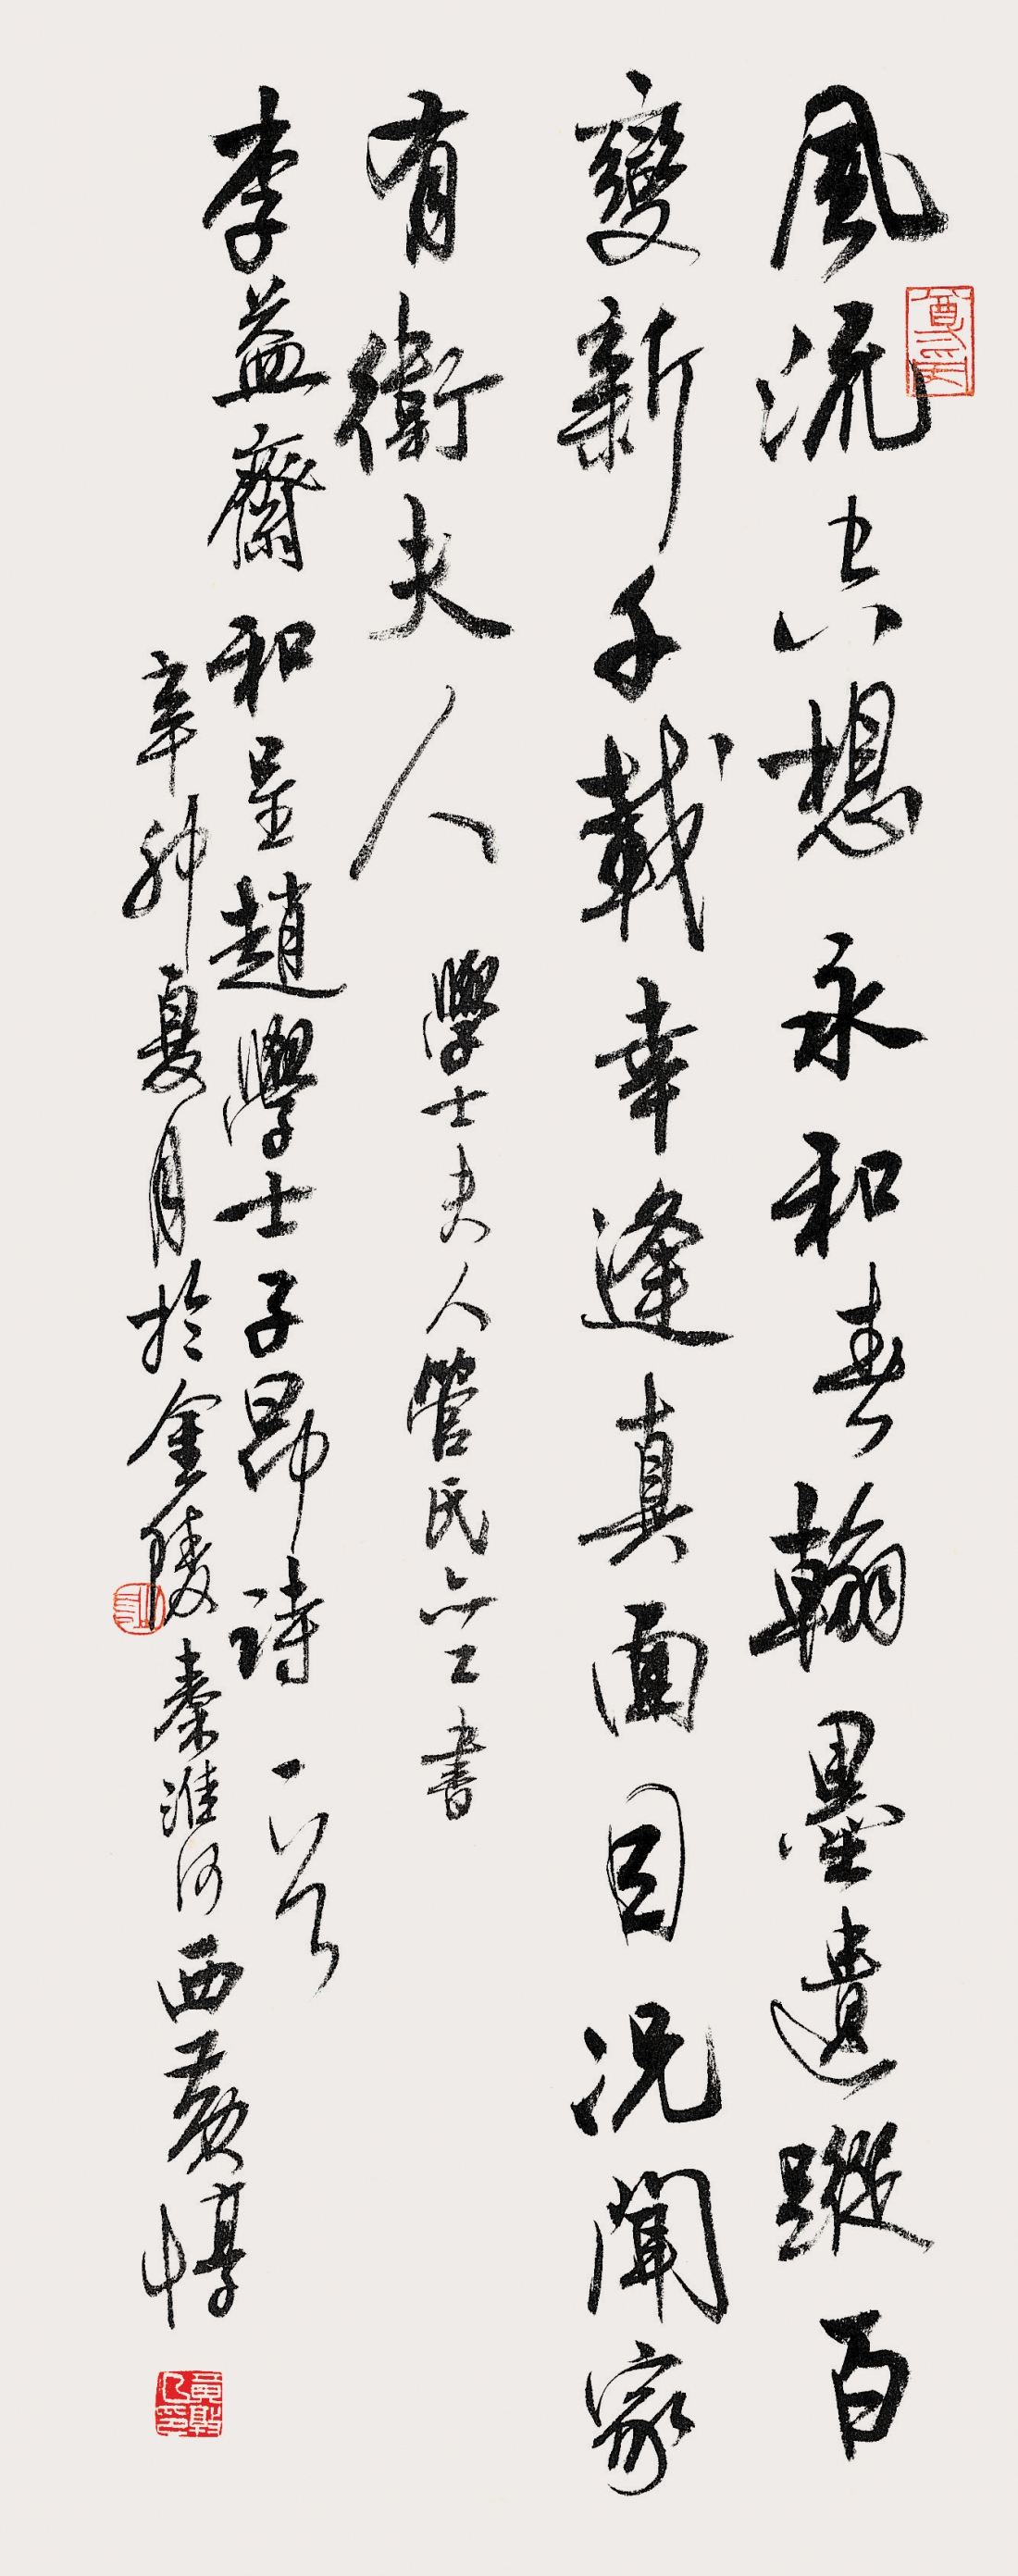 風流空想永和春翰墨遺蹤百
變新千載幸逢真面目況聞家
有衛夫人 學士夫人管氏亦工書
李益齋和呈趙學士子昂詩一首
辛卯夏月於金陵秦淮河西黃惇